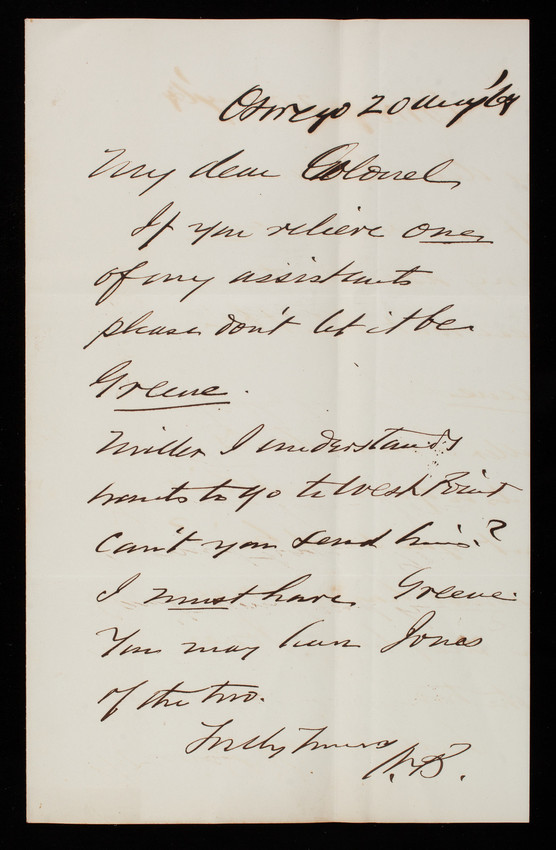 Oswego 20 Aug '64
My dear Colonel,
If you relieve one
of my assistants
please don't let it be
Greene.
Miller I understands
wants to go to West Point
can't you send him?
I must have Greene.
You may have Jones
of the two.
Truly Yours
N.B.